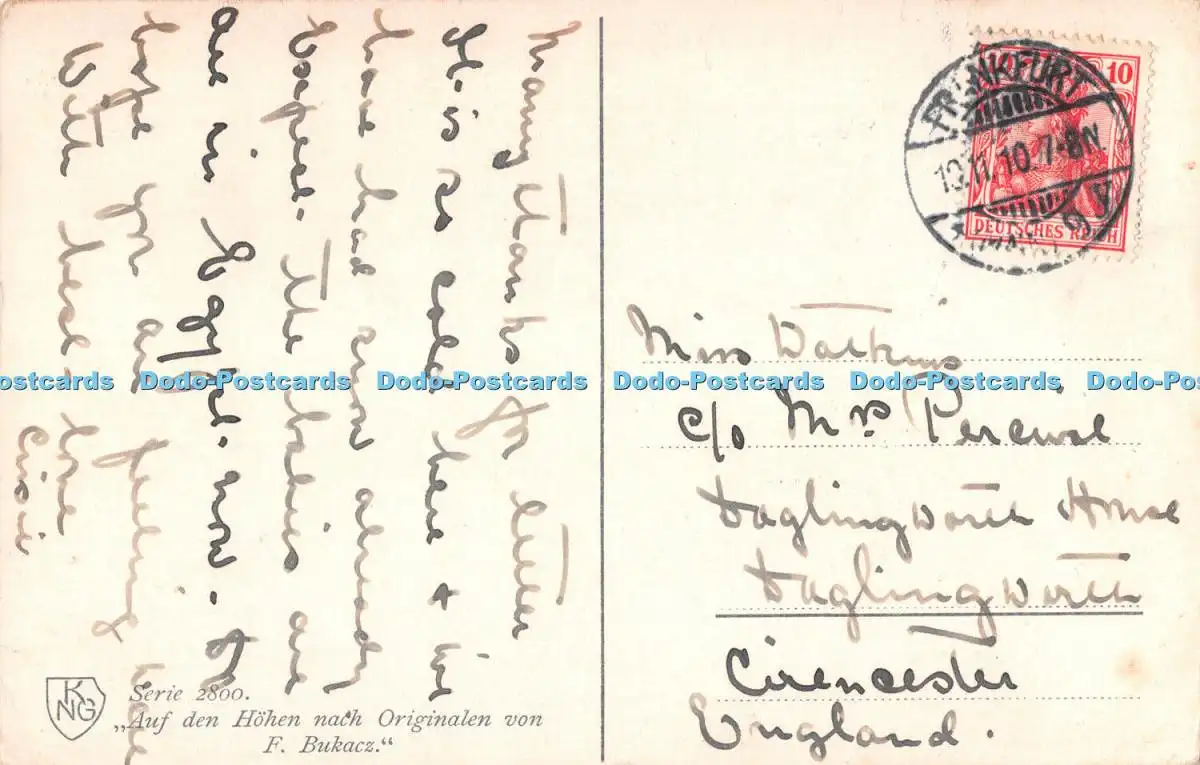 Many thanks for letter
It is so cold here & we
have had snow already
Except. the babies are
are in Egypt. now. to
hope you are feeling
With best love
Cissie
KNG
Serie 2800.
„Auf den Höhen nach Originalen von
F. Bukacz.“
10
FRANKFURT
10 7-8N
DEUTSCHES REICH
Miss Watkins
c/o Mrs Percival
Daglingworth House
Daglingworth
Cirencester
England.
Dodo-Postcards Dodo-Postcards Dodo-Postcards Dodo-Postcards Dodo-Postcards Dodo-Postcards